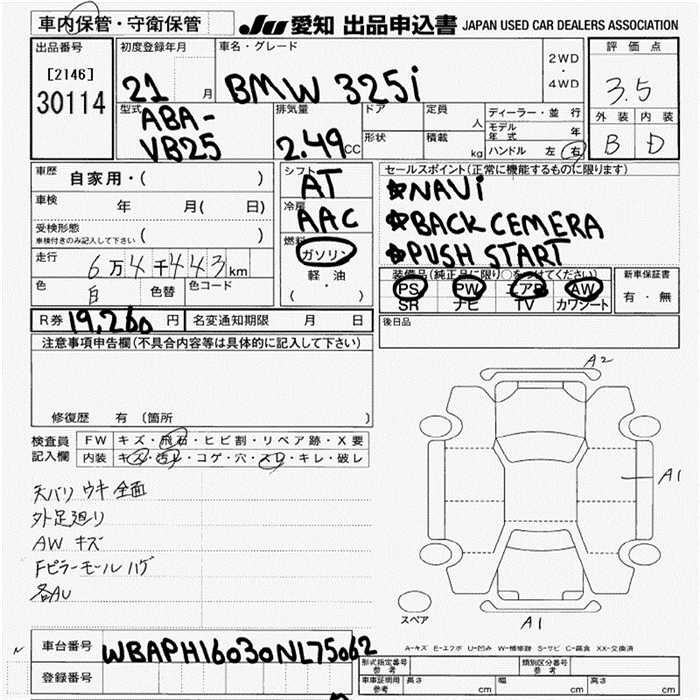 車内保管・守衛保管 JU 愛知 出品申込書 JAPAN USED CAR DEALERS ASSOCIATION
出品番号 初度登録年月 車名・グレード 2WD・4WD 評価点
[2146] 30114 21 月 BMW 325i 3.5
型式 排気量 ドア 定員 人 ディーラー・並行 外装 内装
ABA-VB25 2.49CC 形状 積載 kg モデル年式 年 B D
ハンドル 左 右
車歴 自家用・( ) シフト AT セールスポイント(正常に機能するものに限ります)
☆NAVi
車検 年 月( 日) 冷房 AAC ☆BACK CEMERA
受検形態 車検付きのみ記入して下さい ( ) 燃料 ガソリン ☆PUSH START
走行 6万4千443km 軽油 装備品(純正品に限り○をつけてください) 新車保証書
色 白 色替 色コード ( ・ ) PS PW エアB AW 有・無
SR ナビ TV カワシート
R券 19,260円 名変通知期限 月 日 後日品
注意事項申告欄(不具合内容等は具体的に記入して下さい)
修復歴 有 (箇所
検査員記入欄 FW キズ・飛石・ヒビ割・リペア跡・X要
内装 キズ・汚レ・コゲ・穴・スレ・キレ・破レ
天バリ ウキ 全面
外足廻り
AW キズ
Fピラーモール ハゲ
A2
A1
スペア
A1
A-キズ E-エクボ U-凹み W-補修跡 S-サビ C-腐食 XX-交換済
車台番号 WBAPH16030NL75062
登録番号
形式指定番号 参考 類別区分番号 参考
車車証明用 参考 長さ cm 幅 cm 高さ cm